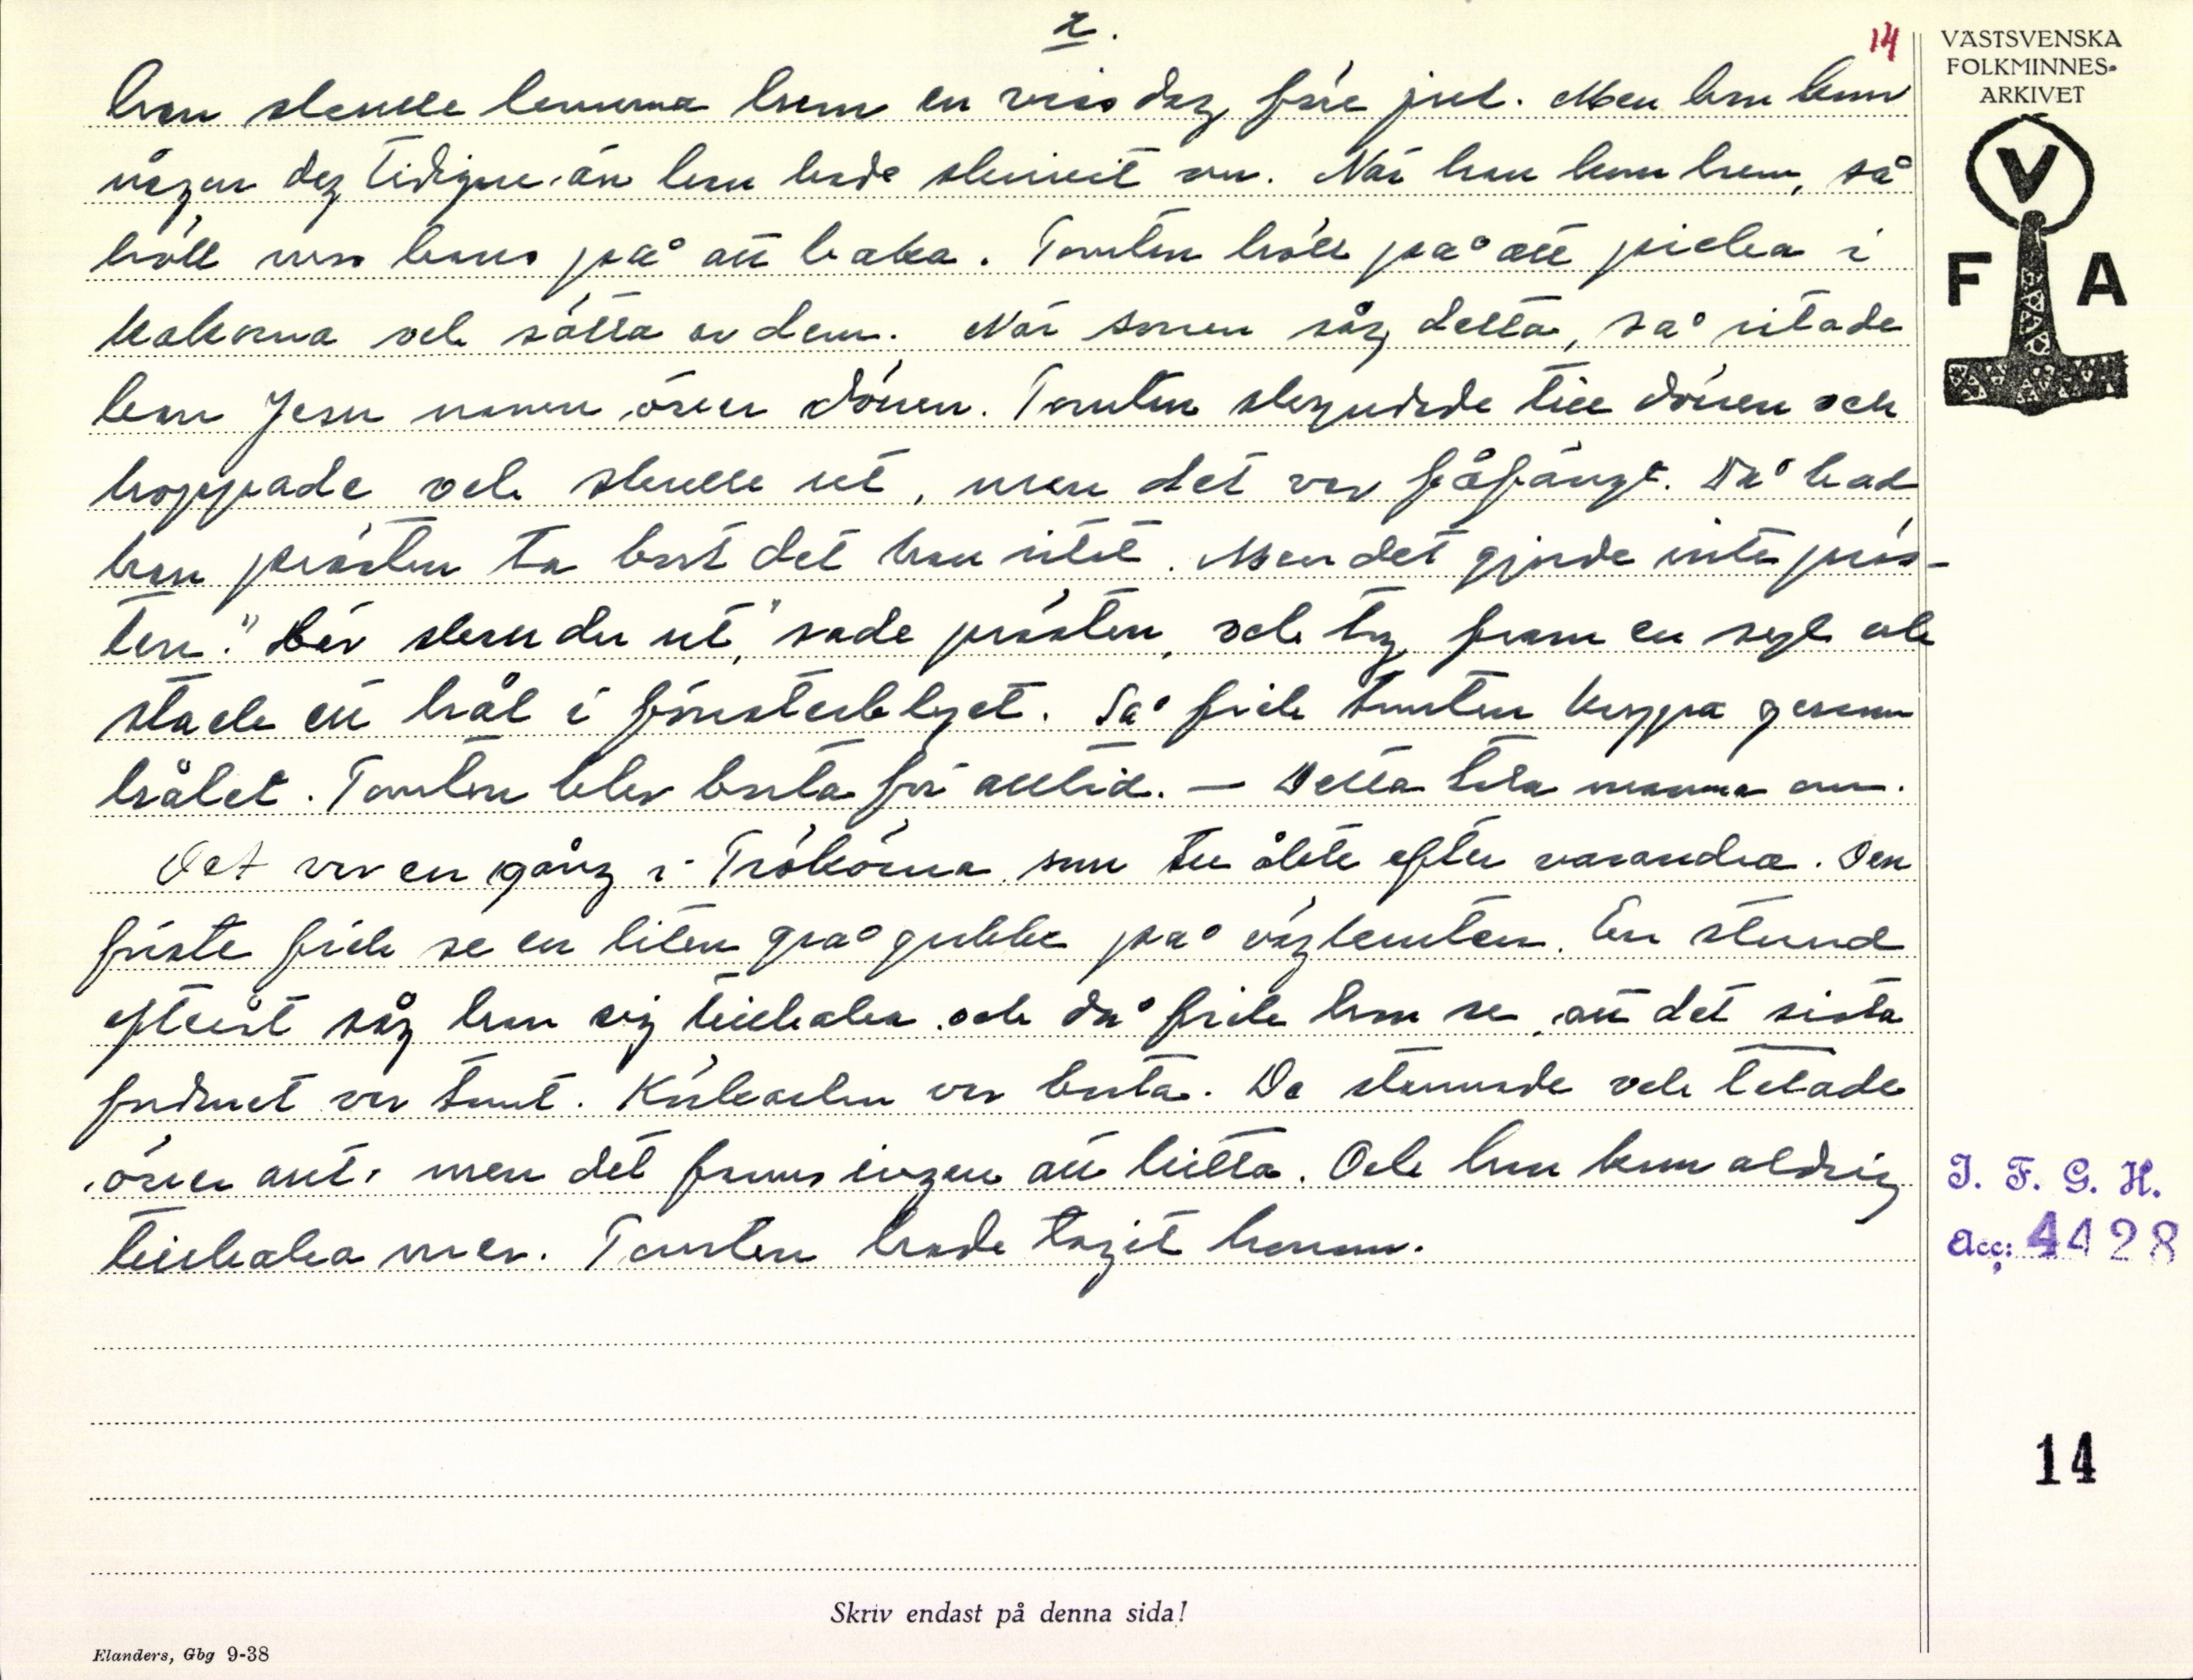 2.
14
han skulle komma hem en viss dag före jul. Men han kom
någon dag tidigare än han hade skrivit om. När han kom hem, så
höll mor hans på att baka. Tomten höll på att picka i
kakorna och sätta av dem. När sonen såg detta, så ritade
han Jesu namn över dörren. Tomten skyndade till dörren och
hoppade och skulle ut, men det var fåfängt. Då bad
han prästen ta bort det han ritat. Men det gjorde inte präs-
ten. "Här skall du ut," sade prästen, och tog fram en syl och
stack ett hål i fönsterblyet. Så fick tomten krypa genom
hålet. Tomten blev borta för alltid. — Detta tala mamma om.
Det var en gång i Trökörna som tre åkte efter varandra. Den
förste fick se en liten grå gubbe på vägkanten. En stund
efteråt såg han sig tillbaka och då fick han se, att det sista
fordonet var tomt. Körkarlen var borta. De stannade och letade
över allt, men det fanns ingen att hitta. Och han kom aldrig
tillbaka mer. Tomten hade tagit honom.
VÄSTSVENSKA
FOLKMINNES-
ARKIVET
V
F A
I. F. G. H.
Acc: 4428
14
Skriv endast på denna sida!
Elanders, Gbg 9-38